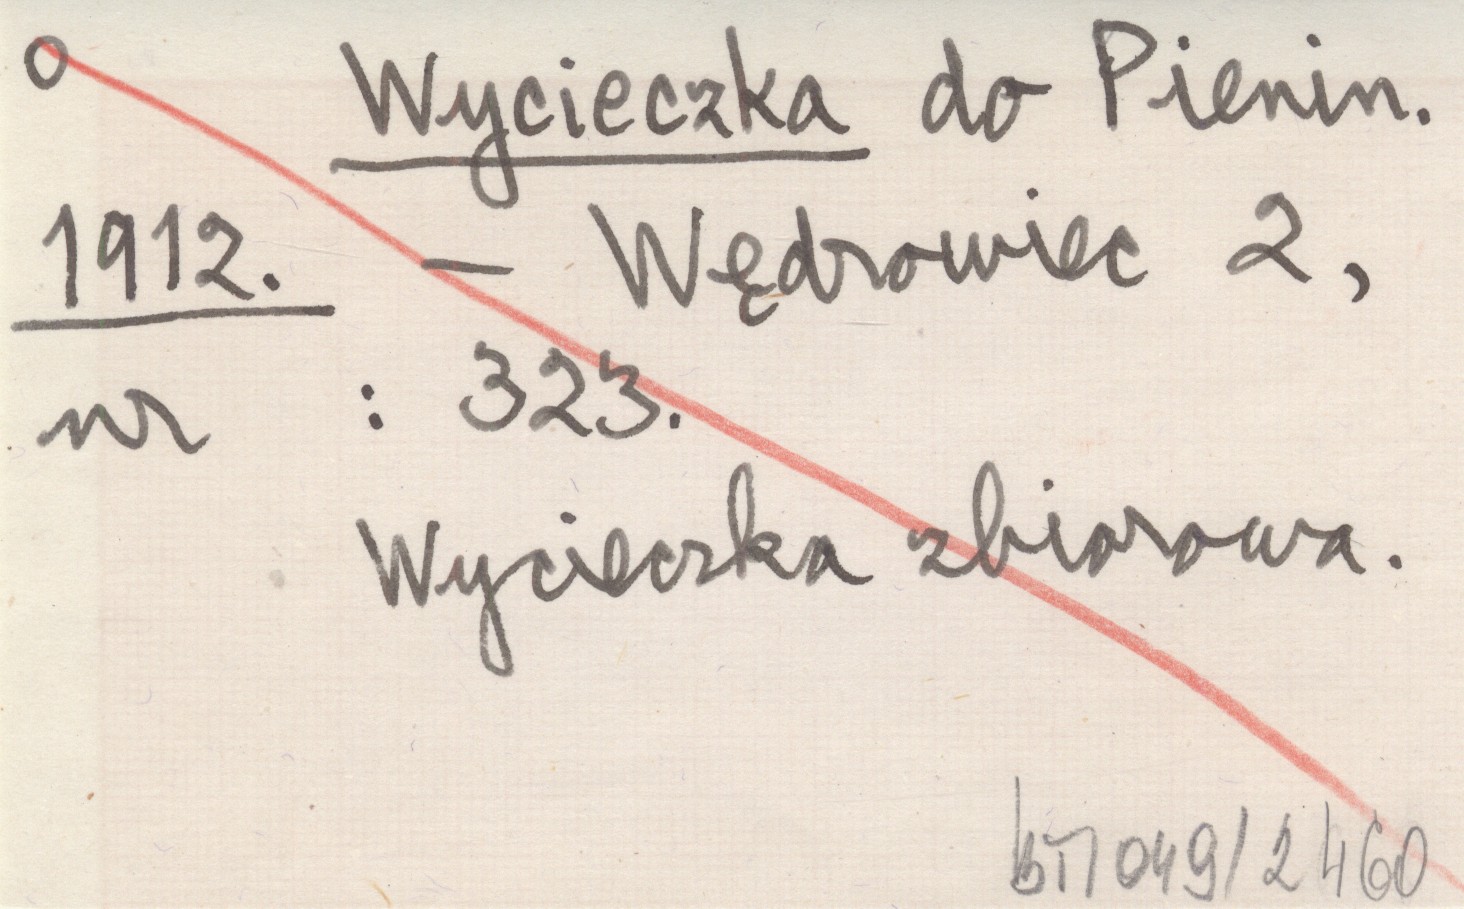 o Wycieczka do Pienin.
1912. — Wędrowiec 2,
nr : 323.
Wycieczka zbiorowa.
049/2460